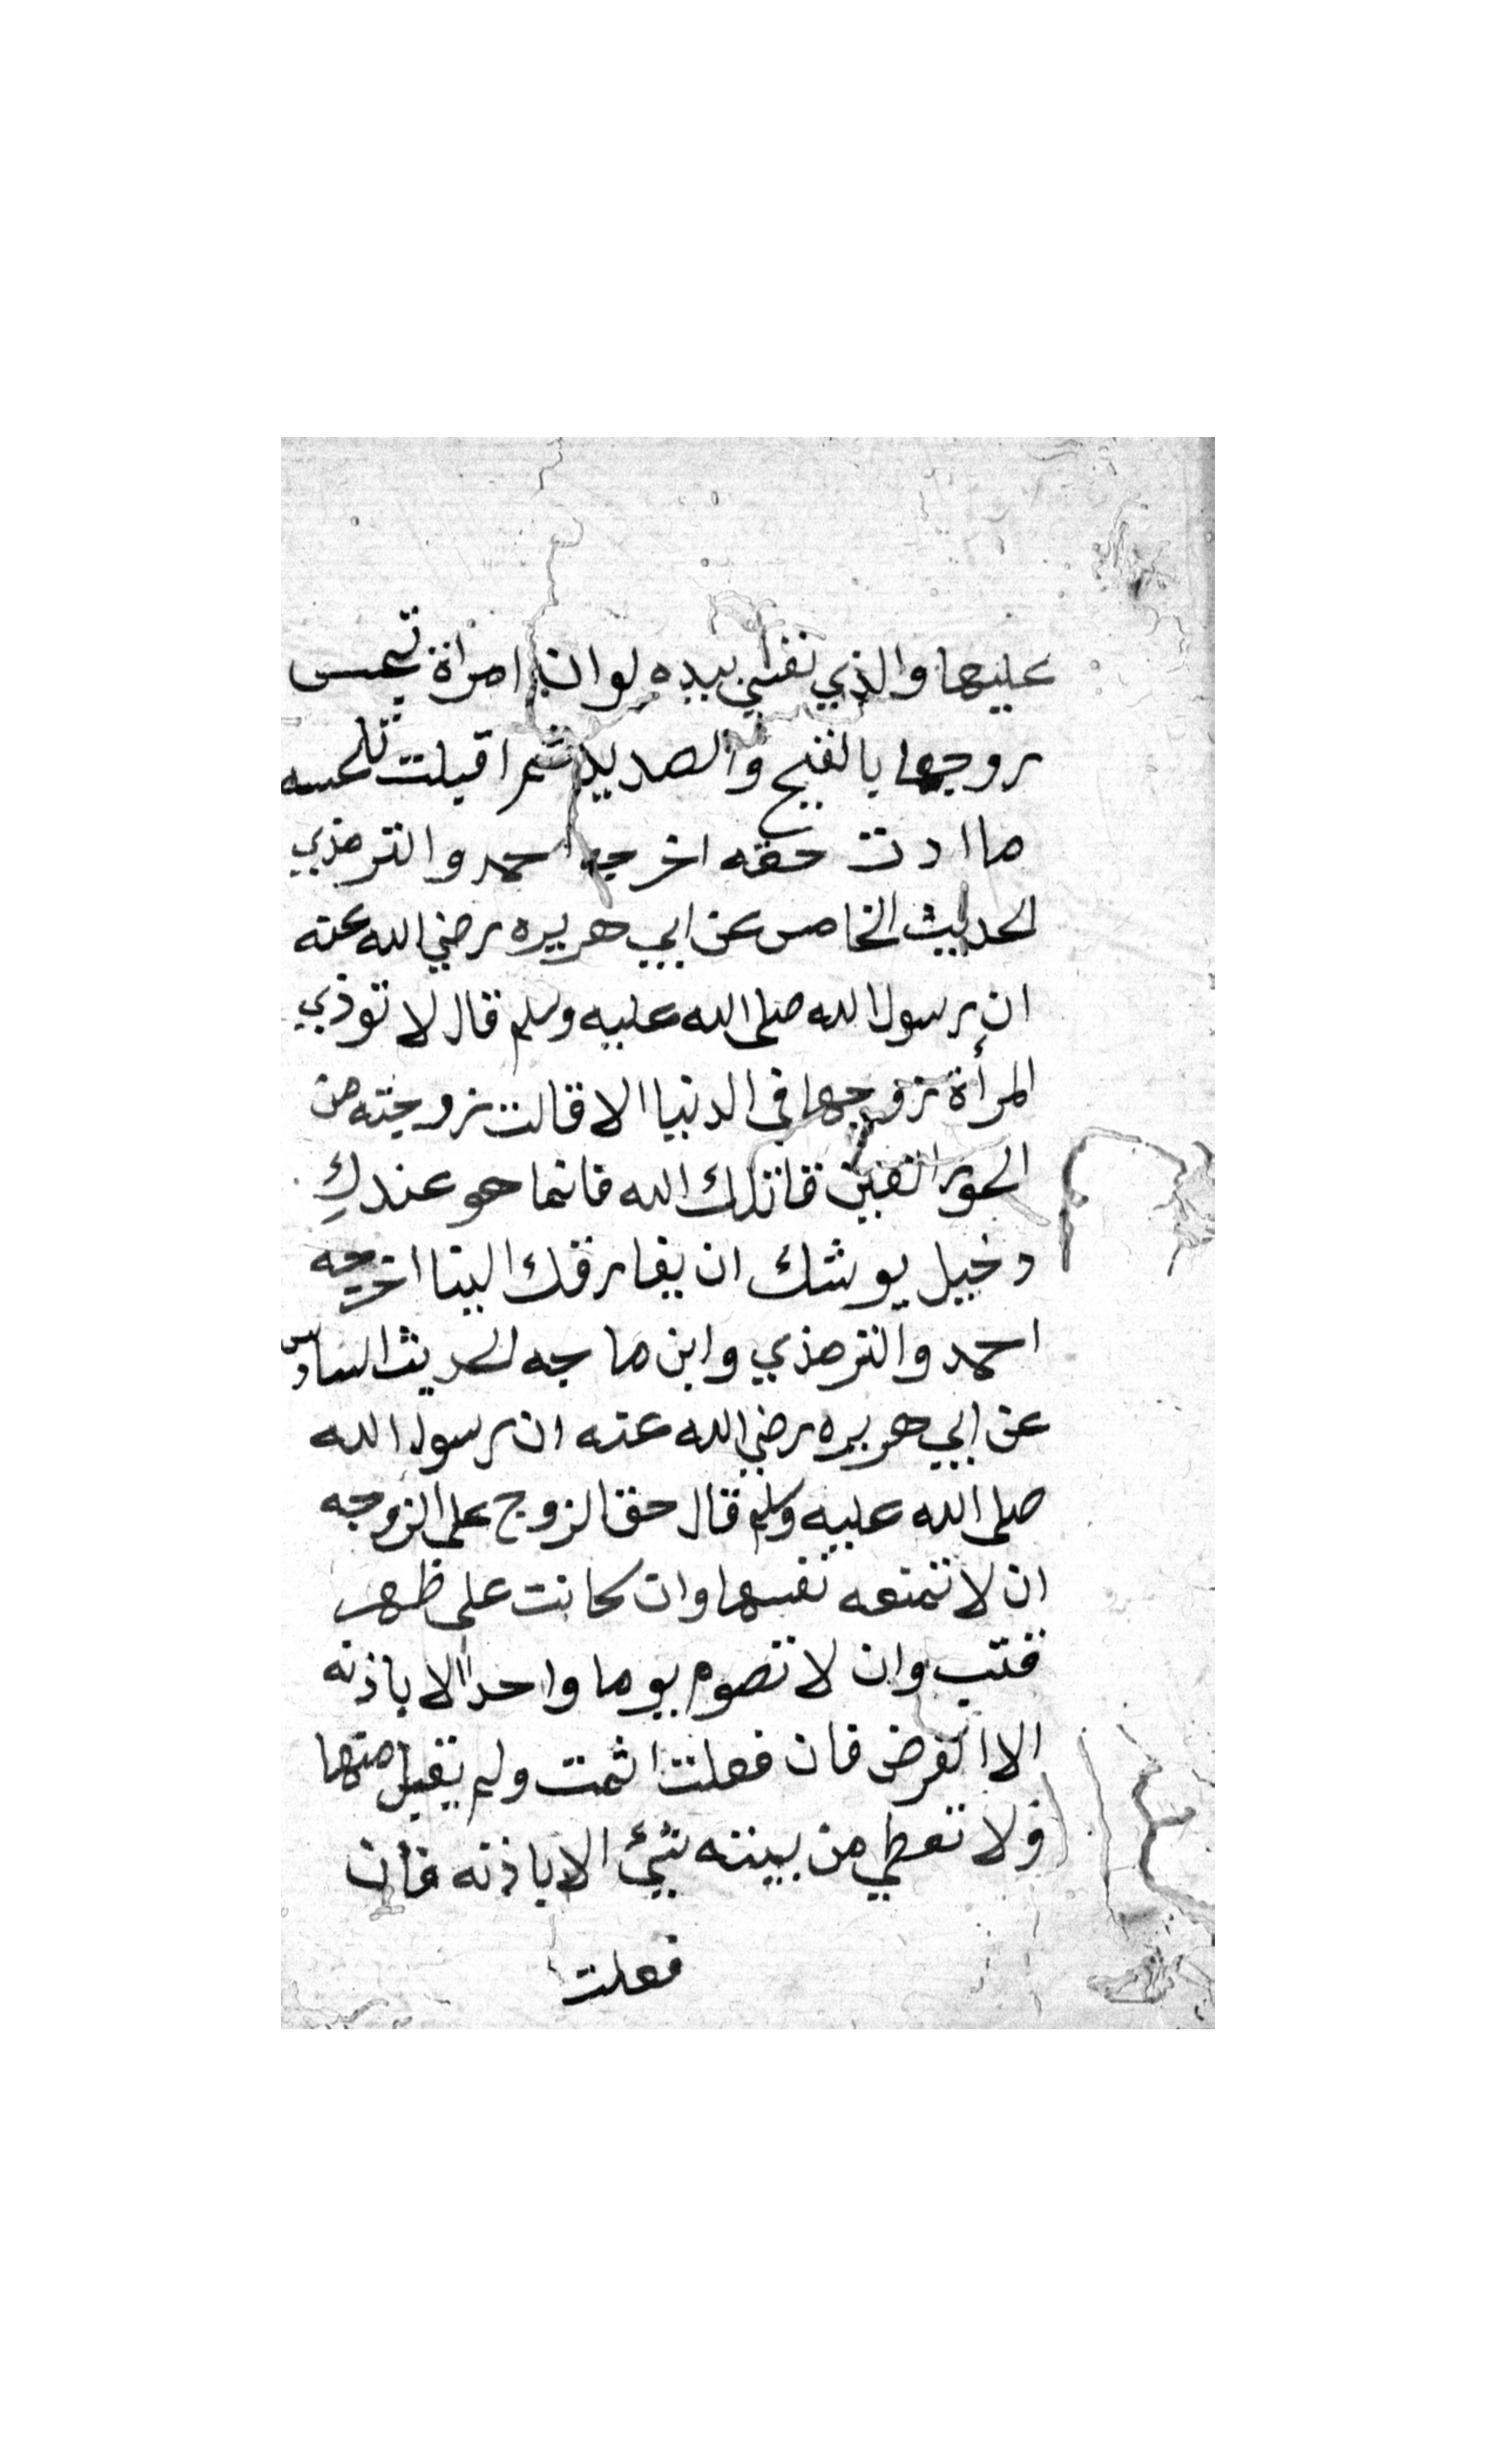 عليها والذي نفسي بيده لو ان امراة
زوجها بالقيح والصديد ثم اقبلت تلحسه
ما ادت حقه اخرجه احمد والترمذي
الحديث الخامس عن ابي هريره رضي الله عنه
ان رسول الله صلى الله عليه وسلم قال لا توذي
المرأة زوجها في الدنيا الا قالت زوجته من
الحور العين قاتلك الله فانما هو عندكِ
دخيل يوشك ان يفارقك الينا اخرجه
احمد والترمذي وابن ماجه الحديث السادس
عن ابي هريره رضي الله عنه ان رسول الله
صلى الله عليه وسلم قال حق الزوج على الزوجه
ان لا تمنعه نفسها وان كانت على ظهر
قتب وان لا تصوم يوما واحدا الا باذنه
الا الفرض فان فعلت اثمت ولم يقبل منها
ولا تعطي من بيته شيئ الا باذنه فان
فعلت